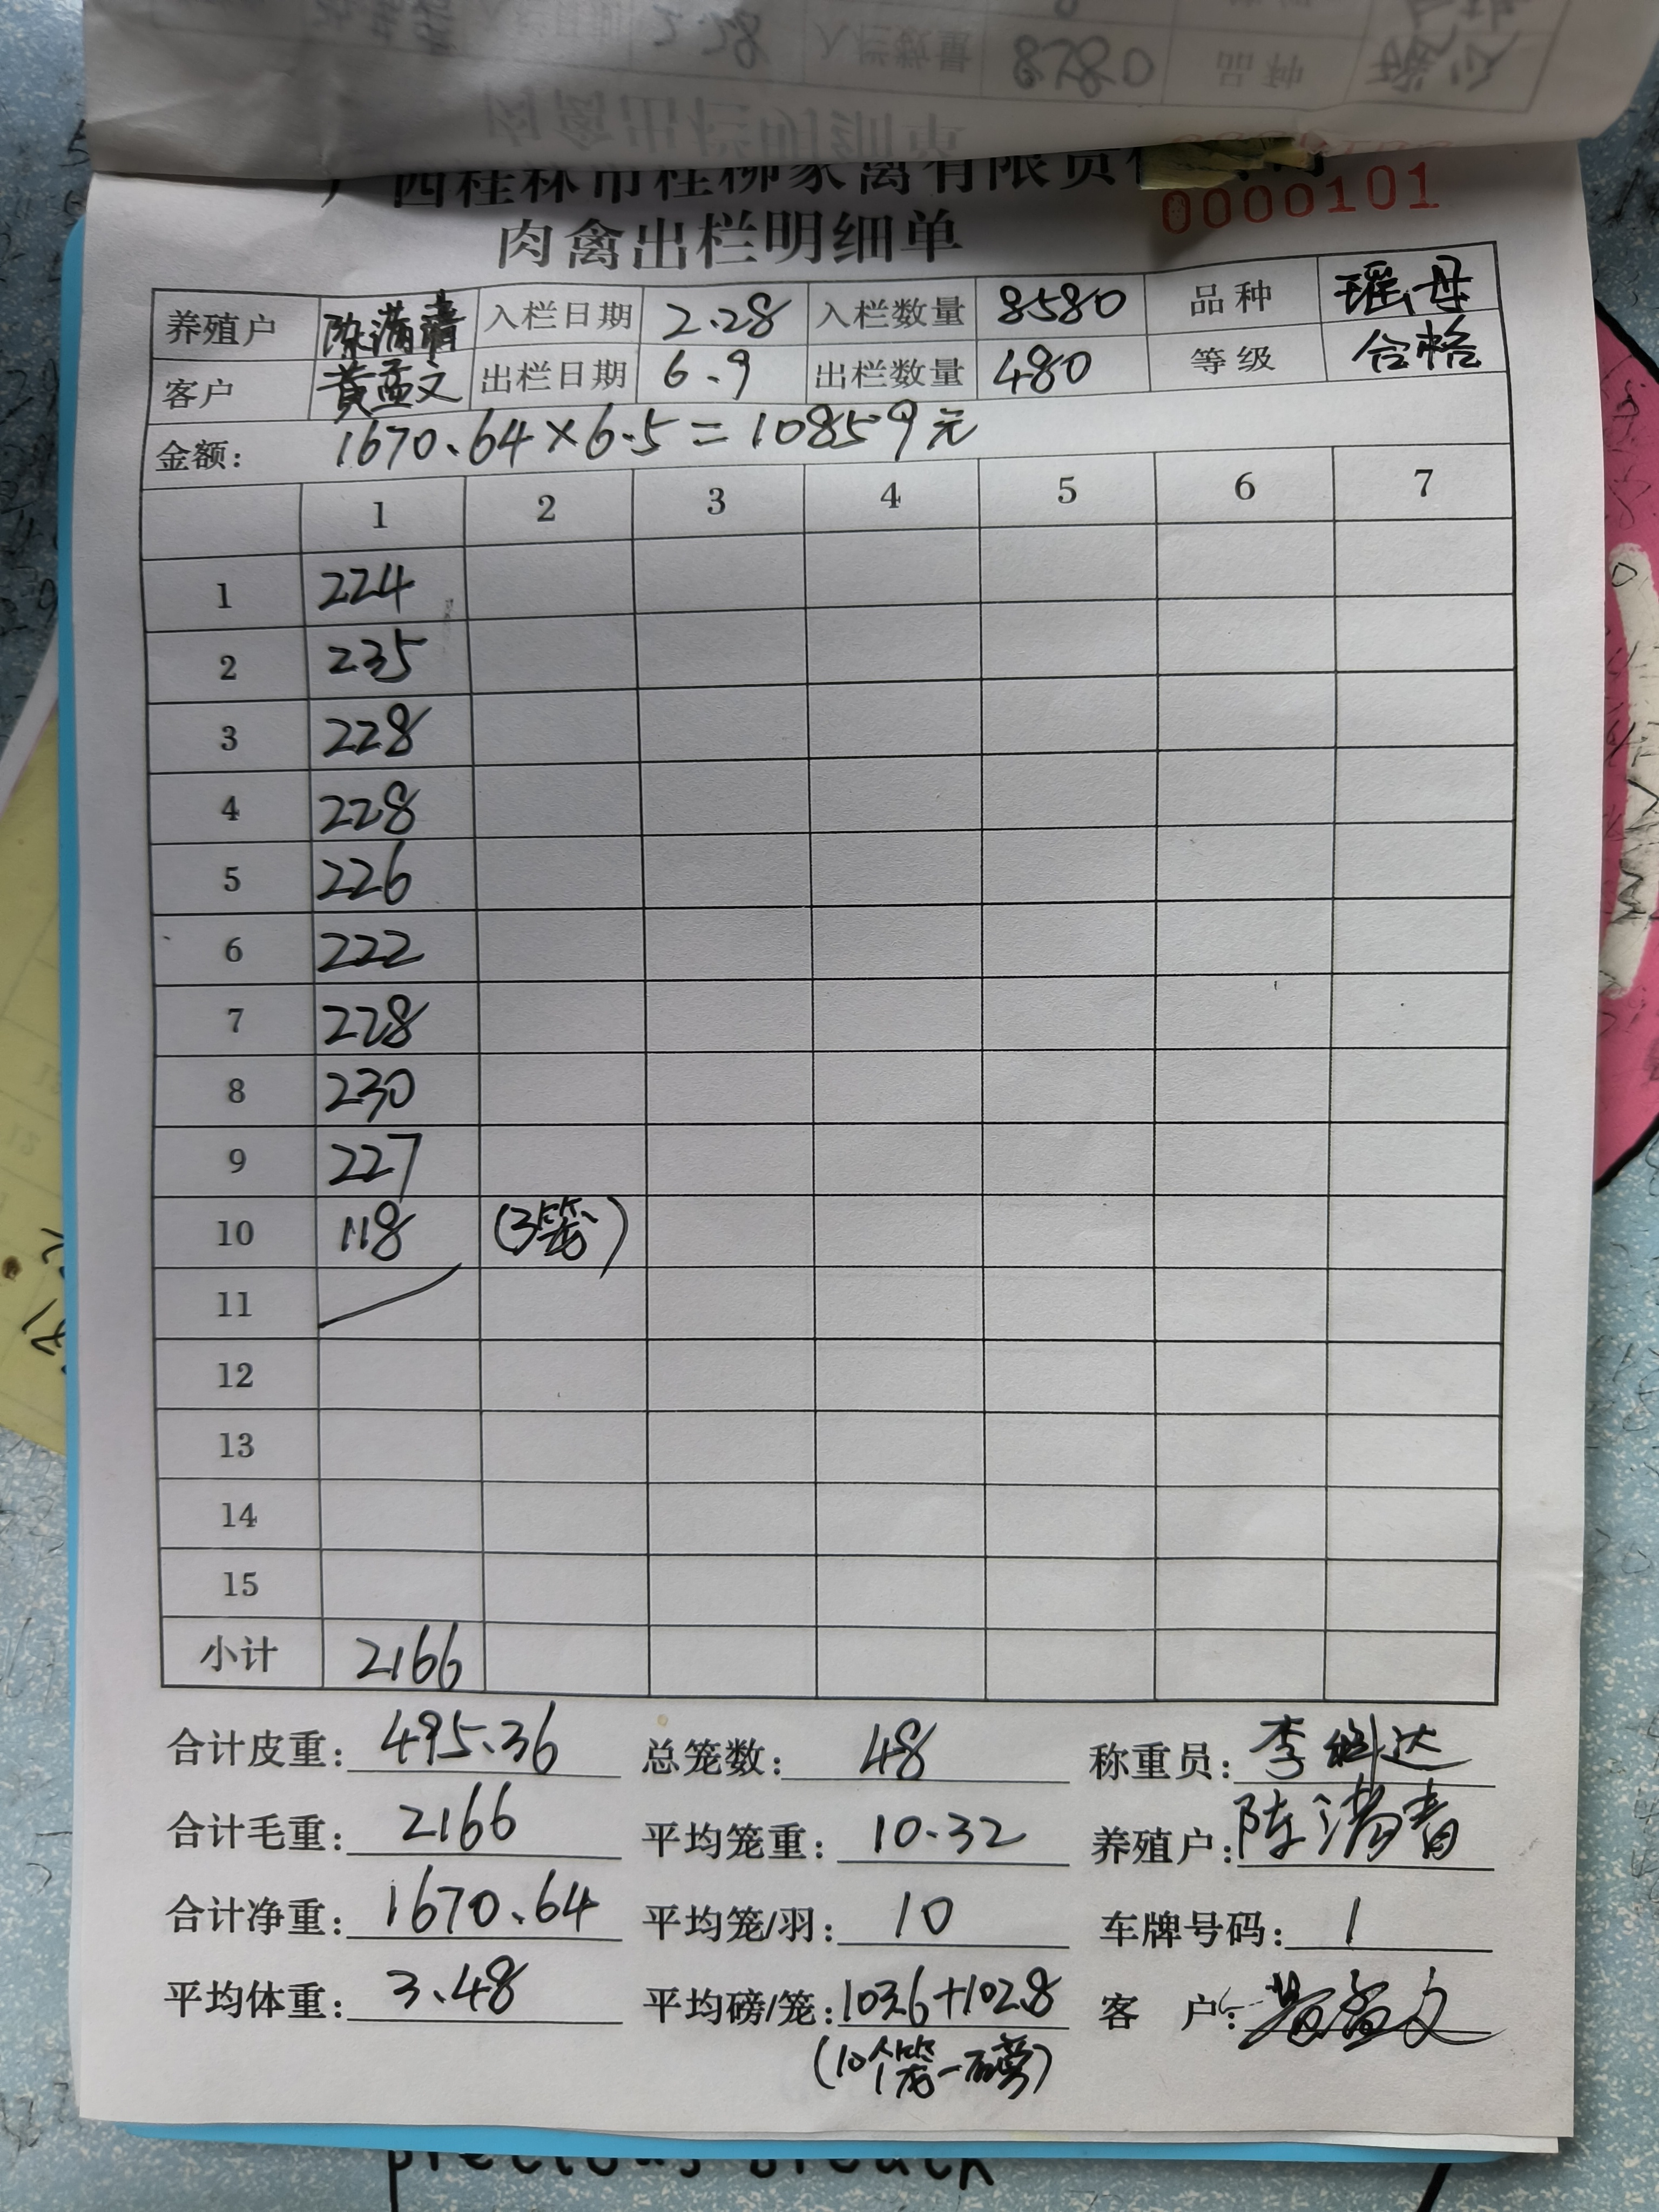 广西桂林市桂柳家禽有限责任
0000101
肉禽出栏明细单
养殖户 陈满清 入栏日期 2.28 入栏数量 8580 品种 瑶母
客户 黄孟文 出栏日期 6.9 出栏数量 480 等级 合格
金额: 1670.64×6.5=10859元
1 2 3 4 5 6 7
1 224
2 235
3 228
4 228
5 226
6 222
7 228
8 230
9 227
10 118 (3笼)
11
12
13
14
15
小计 2166
合计皮重: 495.36 总笼数: 48 称重员: 李 达
合计毛重: 2166 平均笼重: 10.32 养殖户: 陈满青
合计净重: 1670.64 平均笼/羽: 10 车牌号码: 1
平均体重: 3.48 平均磅/笼: 103.6+102.8 客户: 黄孟文
(10个笼一磅)
precious